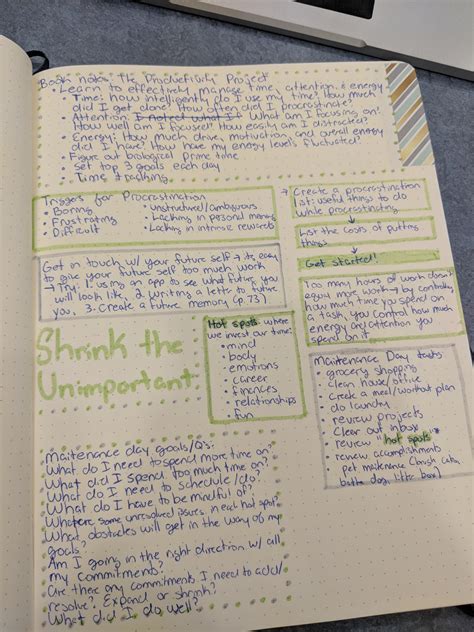 Book notes: The Productivity Project
• Learn to effectively manage time, attention, & energy
• Time: how intelligently do I use my time? How much
did I get done? How often did I procrastinate?
• Attention: I noted what I What am I focusing on?
How well am I focused? How easily am I distracted?
• Energy: How much drive, motivation, and overall energy
did I have? How have my energy levels fluctuated?
• Figure out biological prime time
• Set top 3 goals each day
• Time tracking
Triggers for Procrastination
• Boring
• Frustrating
• Difficult
• unstructured/ambiguous
• Lacking in personal meaning
• Lacking in intrinsic rewards
→ Create a procrastination
list: useful things to do
while procrastinating
List the costs of putting
things
Get started!
Get in touch w/ your future self → its easy
to give your future self too much work
→ Try: 1. using an app to see what future you
will look like, 2. Writing a letter to future
you, 3. Create a future memory (p.73)
Too many hours of work doesn't
equal more work → by controlling
how much time you spend on
a task, you control how much
energy and attention you
spend on it.
Shrink the
Unimportant
Hot spots: where
we invest our time:
• mind
• body
• emotions
• career
• finances
• relationships
• fun
Maintenance Day tasks:
• grocery shopping
• clean house/office
• create a meal/workout plan
• do laundry
• review projects
• Clear out inbox
• review "hot spots"
• review accomplishments
• pet maitenence (brush cats,
bathe dog, litter box)
Maitenance day goals/Q's:
What do I need to spend more time on?
What did I spend too much time on?
What do I need to schedule/do?
What do I have to be mindful of?
What are some unresolved issues in each hot spot?
What obstacles will get in the way of my
goals?
Am I going in the right direction w/ all
my commitments?
Are there any commitments I need to add/
resolve? Expand or shrink?
What did I do well?